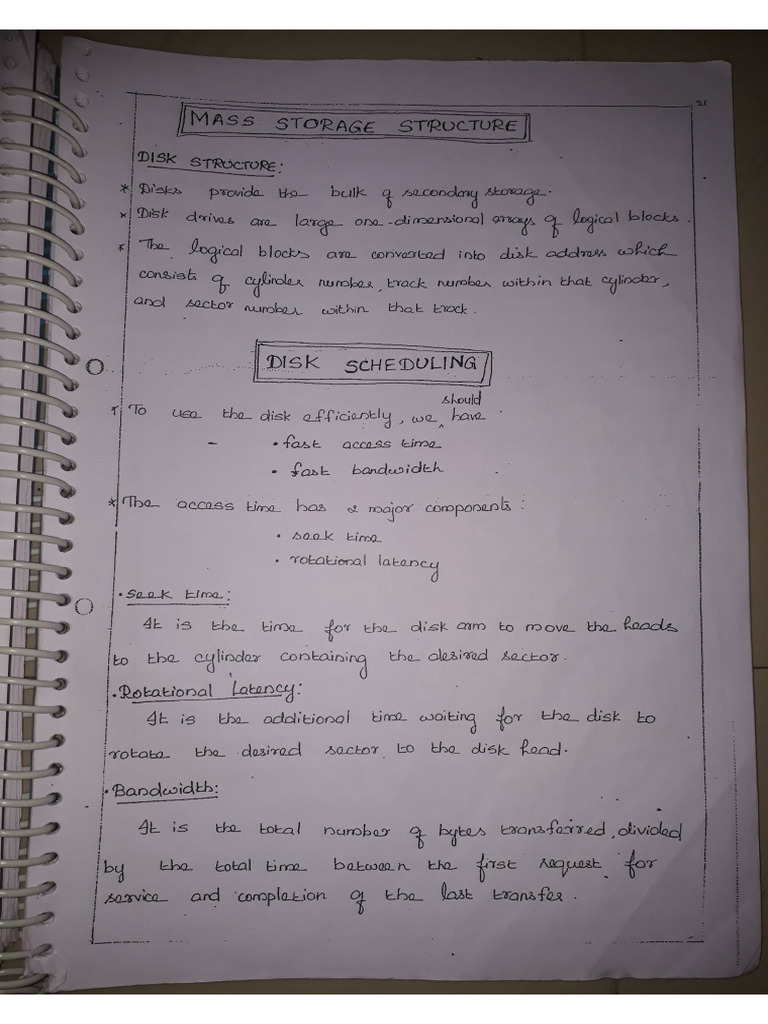 MASS STORAGE STRUCTURE
DISK STRUCTURE:
* Disks provide the bulk of secondary storage.
* Disk drives are large one-dimensional arrays of logical blocks.
* The logical blocks are converted into disk address which
consists of cylinder number, track number within that cylinder,
and sector number within that track.
DISK SCHEDULING
should
* To use the disk efficiently, we ^ have
- • fast access time
• fast bandwidth
* The access time has 2 major components:
• seek time
• rotational latency
• Seek time:
It is the time for the disk arm to move the heads
to the cylinder containing the desired sector.
• Rotational Latency:
It is the additional time waiting for the disk to
rotate the desired sector to the disk head.
• Bandwidth:
It is the total number of bytes transferred, divided
by the total time between the first request for
service and completion of the last transfer.